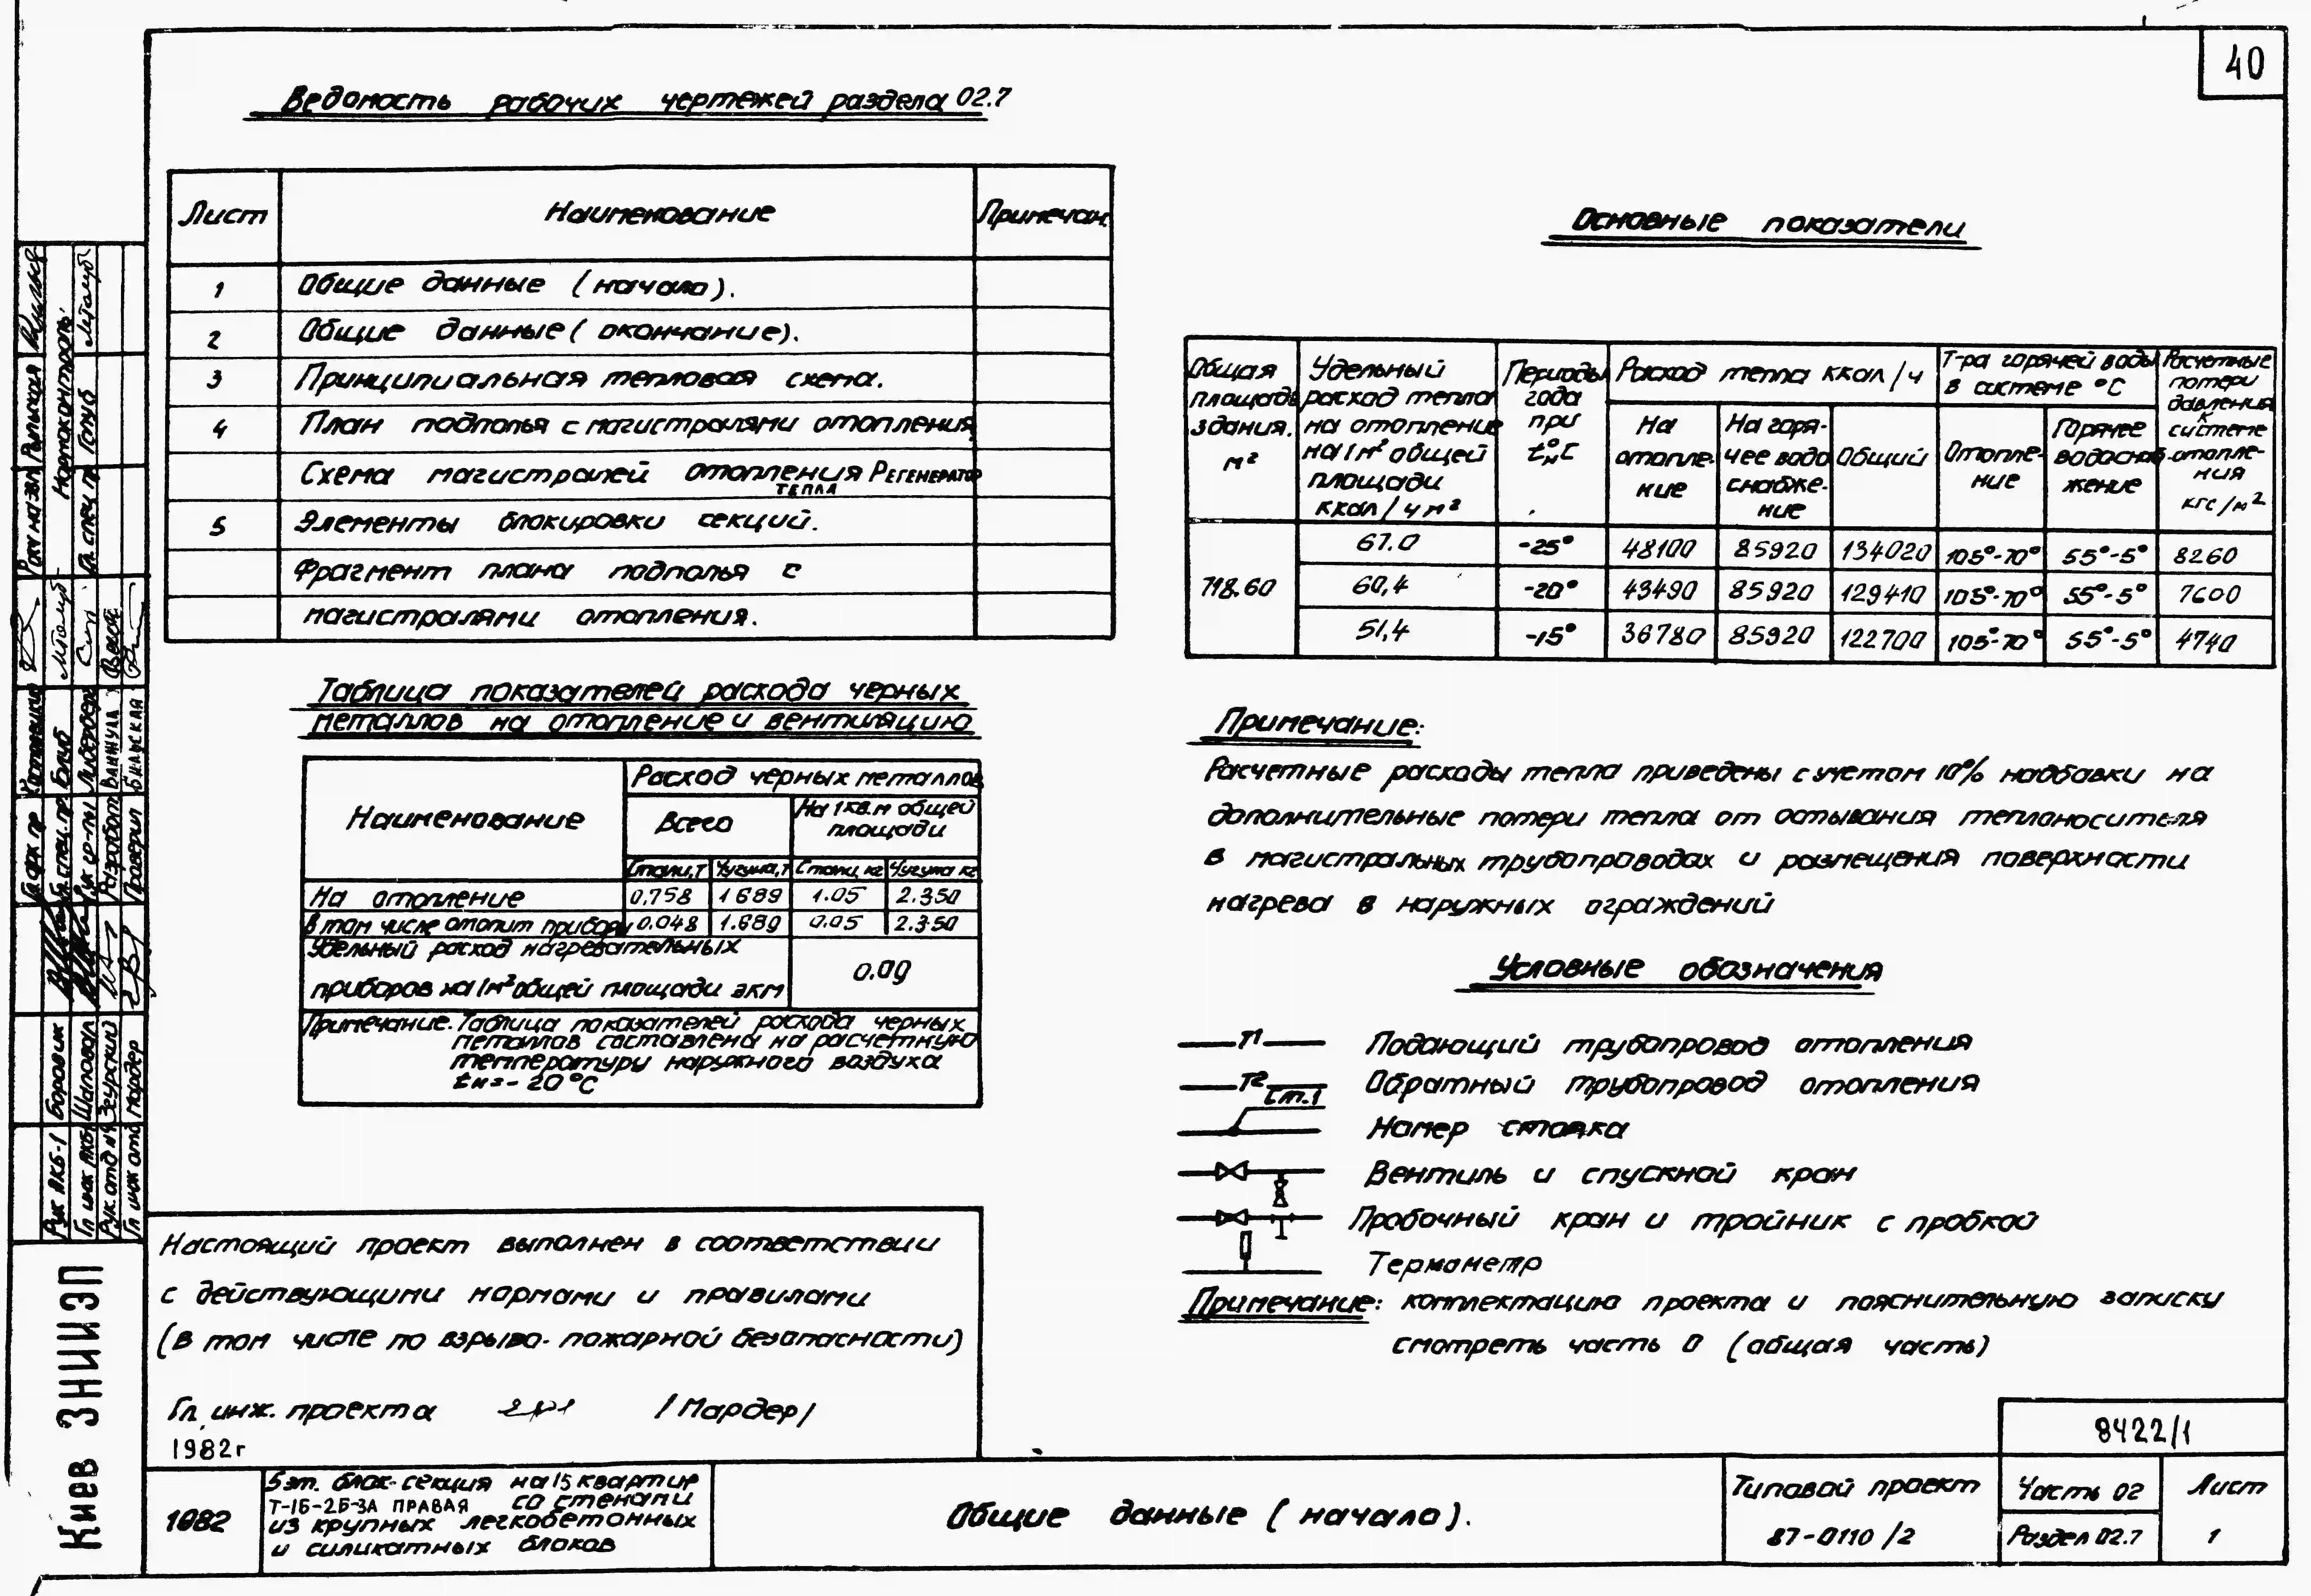 40
Ведомость рабочих чертежей раздела 02.7
Лист Наименование Примечан.
1 Общие данные (начало).
2 Общие данные (окончание).
3 Принципиальная тепловая схема.
4 План подполья с магистралями отопления
Схема магистралей отопления Регенератор
тепла
5 Элементы блокировки секций.
Фрагмент плана подполья с
магистралями отопления.
Таблица показателей расхода черных
металлов на отопление и вентиляцию
Наименование
Расход черных металлов
Всего
На 1 кв.м общей
площади
Стали,т Чугуна,т Стали, кг Чугуна кг
На отопление 0.758 1 689 1.05 2.350
В том числе отопит прибору 0.048 1.689 0.05 2.350
Удельный расход нагревательных
приборов на 1м² общей площади экм
0.09
Примечание. Таблица показателей расхода черных
металлов составлена на расчетную
температуру наружного воздуха
tн=-20°С
Настоящий проект выполнен в соответствии
с действующими нормами и правилами
(в том числе по взрыво-пожарной безопасности)
Гл. инж. проекта /Мардер/
1982г
Основные показатели
Общая
площадь
здания.
м²
Удельный
расход тепла
на отопление
на 1м² общей
площади
ккал/чм²
Периоды
года
при
tн°С
Расход тепла ккал/ч
На
отопле-
ние
На горя-
чее водо
снабже-
ние
Общий
Т-ра горячей воды
в системе °С
Отопле-
ние
Горячее
водоснаб-
жение
Расчетные
потери
давления
к
системе
отопле-
ния
кгс/м²
718.60
67.0 -25° 48100 85920 134020 105°-70° 55°-5° 8260
60,4 -20° 43490 85920 129410 105°-70° 55°-5° 7600
51,4 -15° 36780 85920 122700 105°-70° 55°-5° 4740
Примечание:
Расчетные расходы тепла приведены с учетом 10% надбавки на
дополнительные потери тепла от остывания теплоносителя
в магистральных трубопроводах и размещения поверхности
нагрева в наружных ограждений
Условные обозначения
Т1 Подающий трубопровод отопления
Т2 Обратный трубопровод отопления
Ст.1 Номер стояка
Вентиль и спускной кран
Пробочный кран и тройник с пробкой
Термометр
Примечание: комплектацию проекта и пояснительную записку
смотреть часть 0 (общая часть)
8422/1
1982
5эт. блок-секция на 15 квартир
Т-1Б-2Б-3А ПРАВАЯ со стенами
из крупных легкобетонных
и силикатных блоков
Общие данные (начало).
Типовой проект
87-0110/2
Часть 02
Раздел 02.7
Лист
1
Киев ЗНИИЭП
Рук АКБ-1 Боровик
Гл инж АКБ-1 Шаповал
Рук. отд №9 Зеурский
Гл инж отд Мардер
Гл. спец. пр. Голуб
Разработал Ванжула
Проверил
Нормоконтроль
Гл. спец пр Голуб